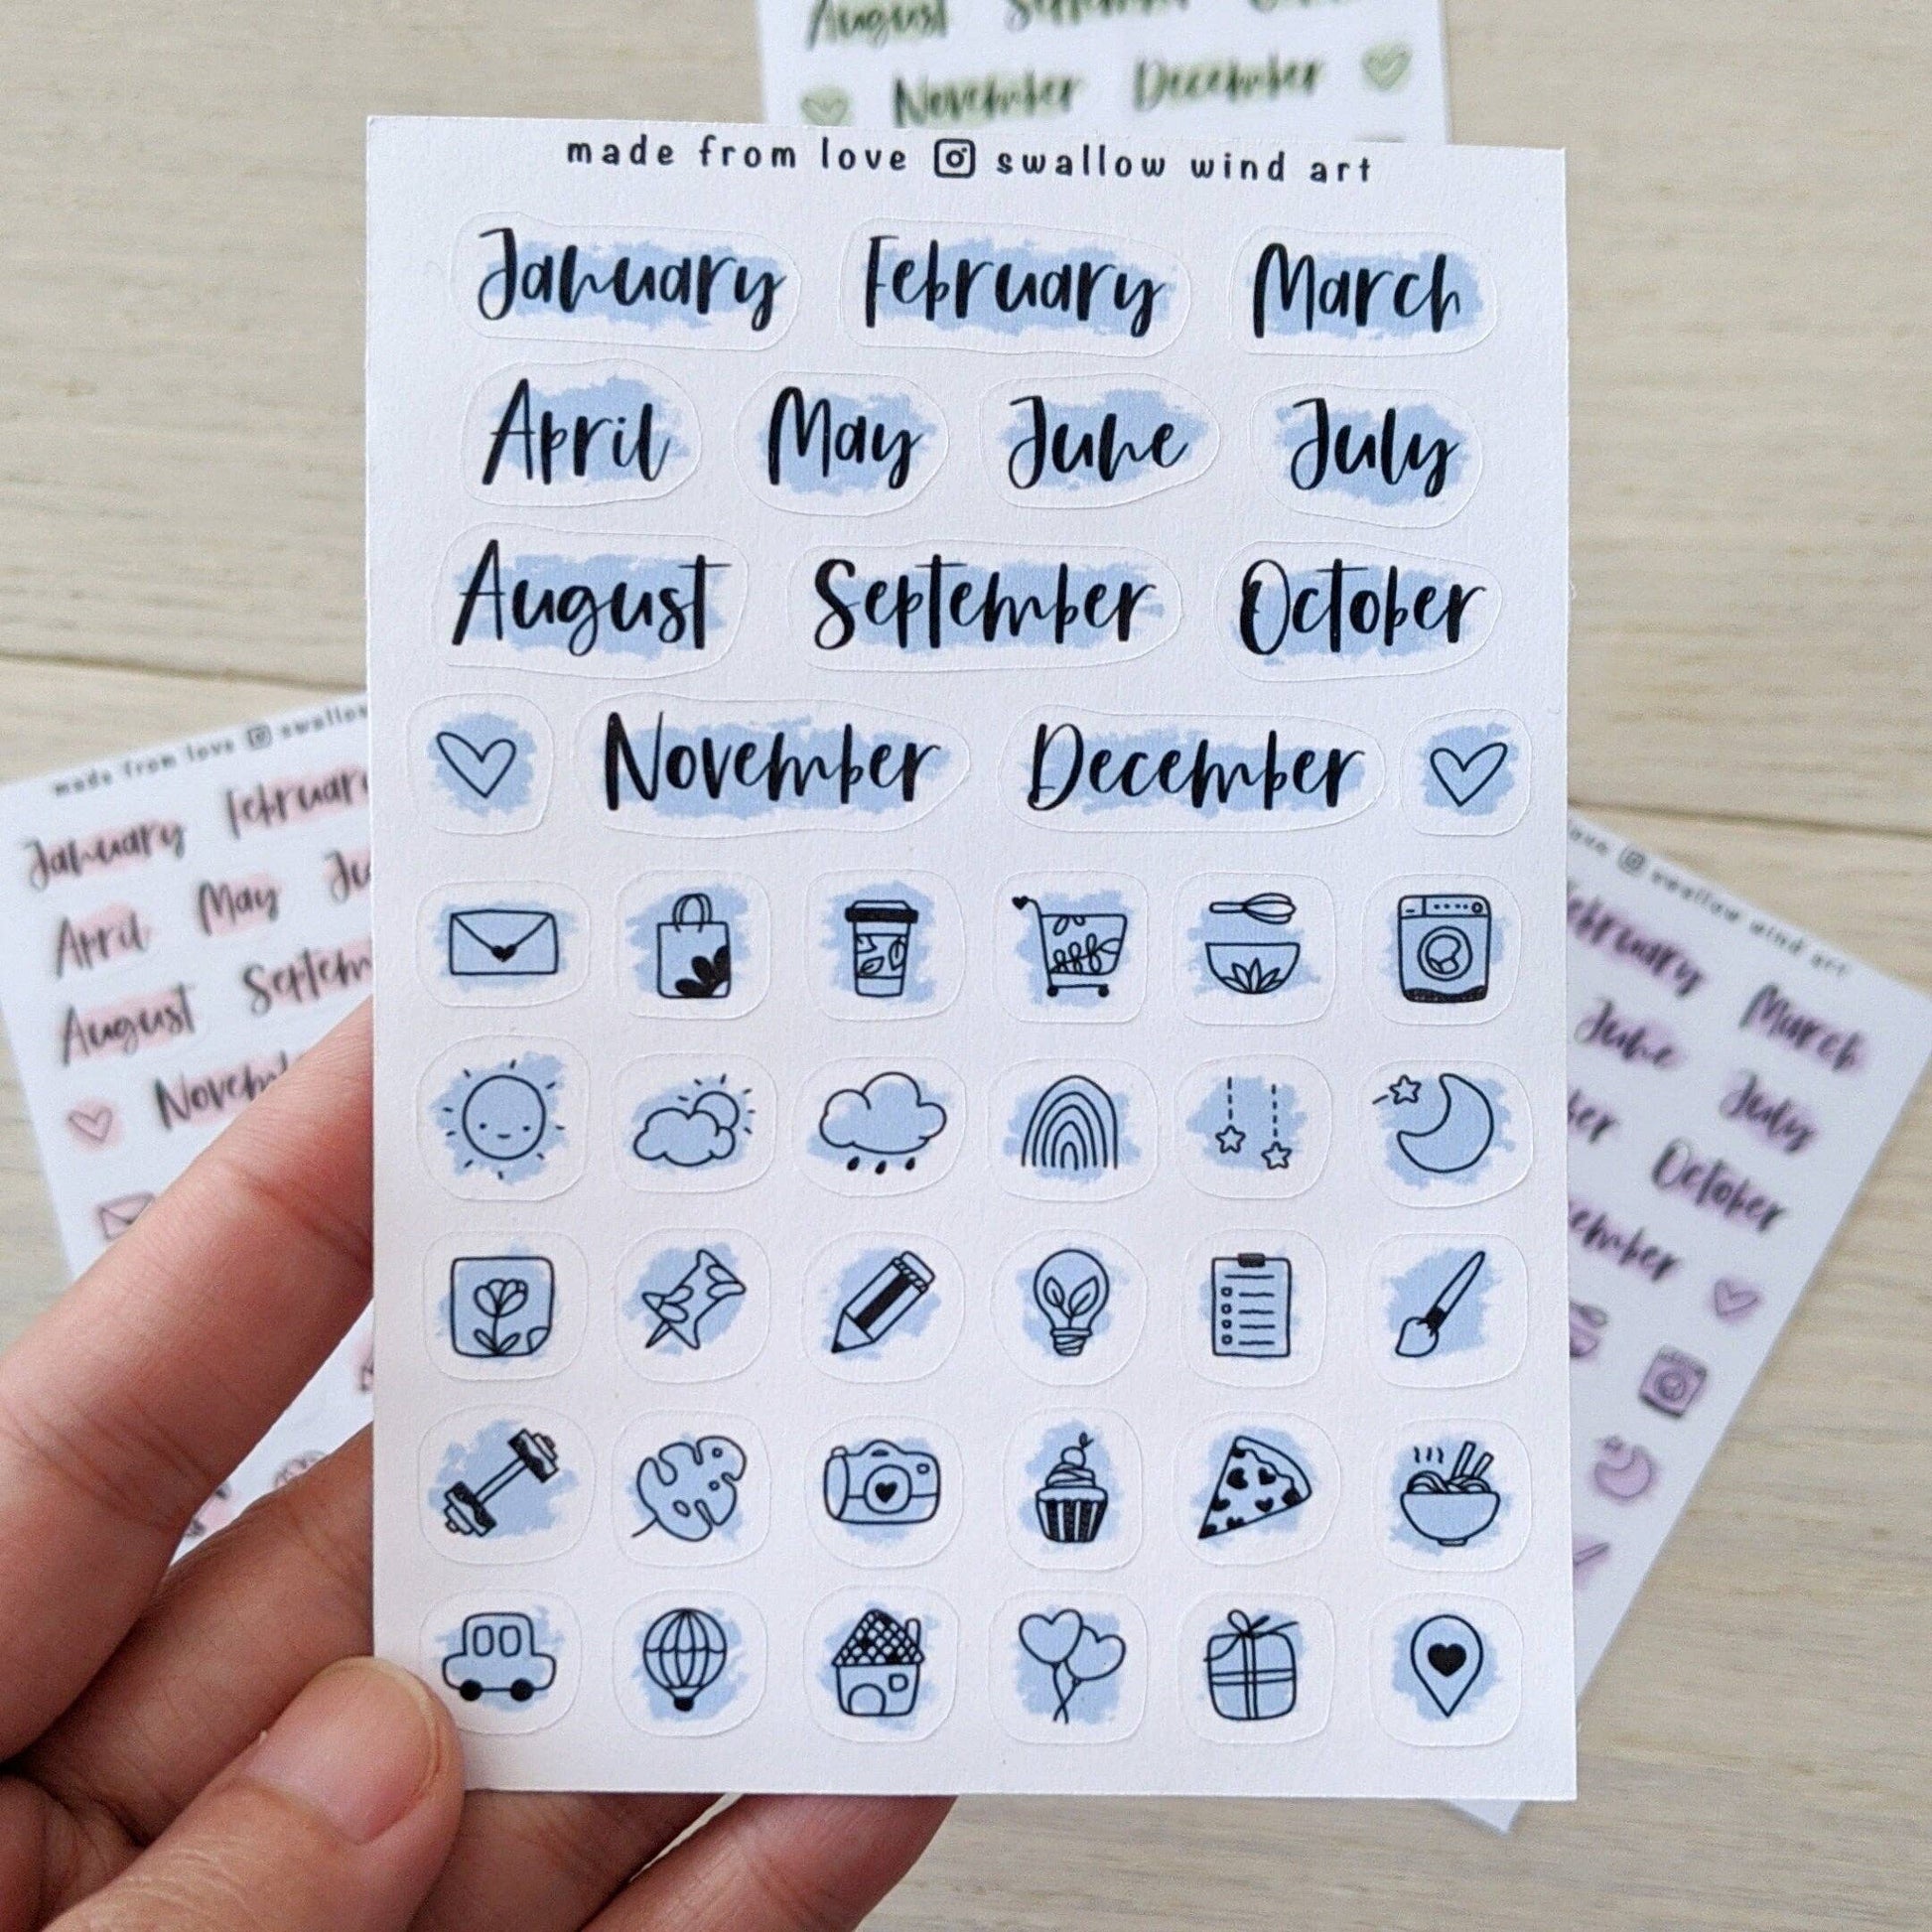 August September
November December
made from love swallow wind art
January February March
April May June July
August September October
November December
made from love swallow
January February
April May
August Septem
Novemb
love swallow wind art
February March
June July
October
cember